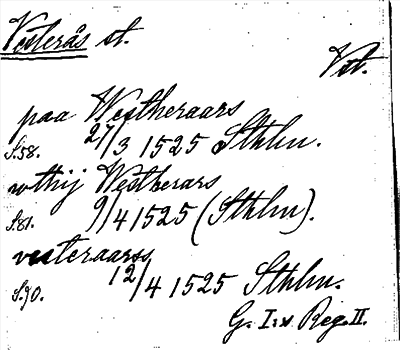 Vesterås st.
Vst.
paa Westheraars
S.58. 27/3 1525 Sthlm.
wthij Westherars
S.81. 9/4 1525 (Sthlm).
vesteraarss
S.90. 12/4 1525 Sthlm.
G. I:s Reg. II.